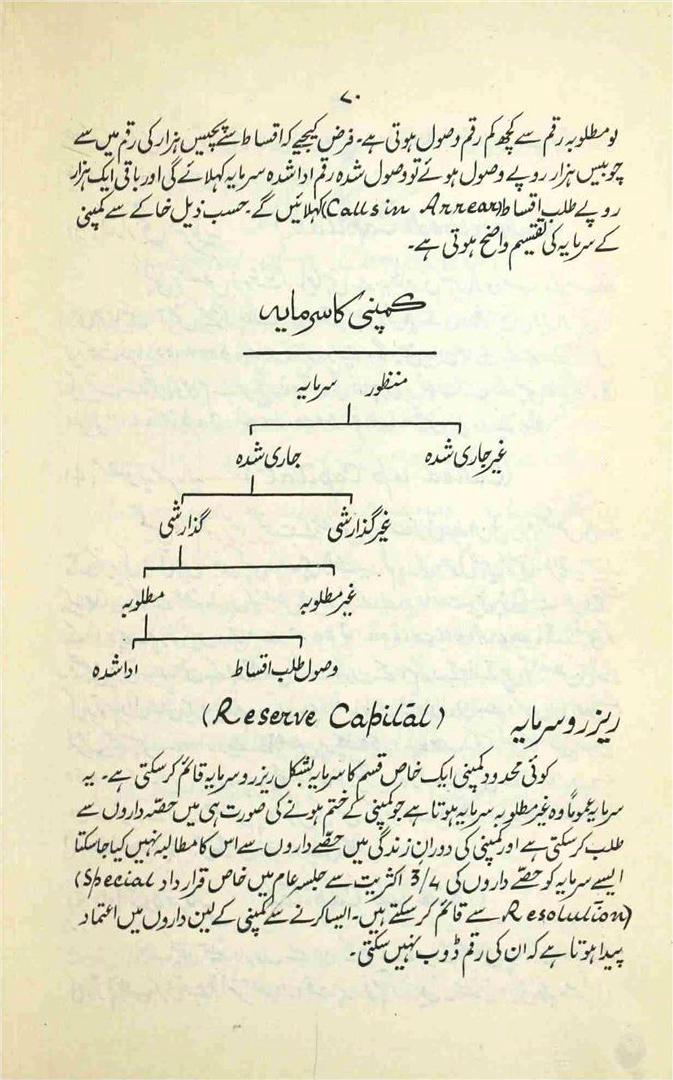 ۷۰
تو مطلوبہ رقم سے کچھ کم رقم وصول ہوتی ہے۔ فرض کیجیے کہ اقساط سے پچیس ہزار کی رقم میں سے
چوبیس ہزار روپے وصول ہوئے تو وصول شدہ رقم ادا شدہ سرمایہ کہلائے گی اور باقی ایک ہزار
روپے طلب اقساط (Calls in Arrear) کہلائیں گے۔ حسب ذیل خاکے سے کمپنی
کے سرمایہ کی تقسیم واضح ہوتی ہے۔
کمپنی کا سرمایہ
منظور سرمایہ
غیر جاری شدہ جاری شدہ
غیر گذارشی گذارشی
غیر مطلوبہ مطلوبہ
وصول طلب اقساط ادا شدہ
ریزرو سرمایہ (Reserve Capital)
کوئی محدود کمپنی ایک خاص قسم کا سرمایہ بشکل ریزرو سرمایہ قائم کر سکتی ہے۔ یہ
سرمایہ عموماً وہ غیر مطلوبہ سرمایہ ہوتا ہے جو کمپنی کے ختم ہونے کی صورت ہی میں حصّہ داروں سے
طلب کر سکتی ہے اور کمپنی کی دوران زندگی میں حصّے داروں سے اس کا مطالبہ نہیں کیا جا سکتا
ایسے سرمایہ کو حصّے داروں کی 3/4 اکثریت سے جلسہ عام میں خاص قرارداد (Special
Resolution) سے قائم کر سکتے ہیں۔ ایسا کرنے سے کمپنی کے لین داروں میں اعتماد
پیدا ہوتا ہے کہ ان کی رقم ڈوب نہیں سکتی۔